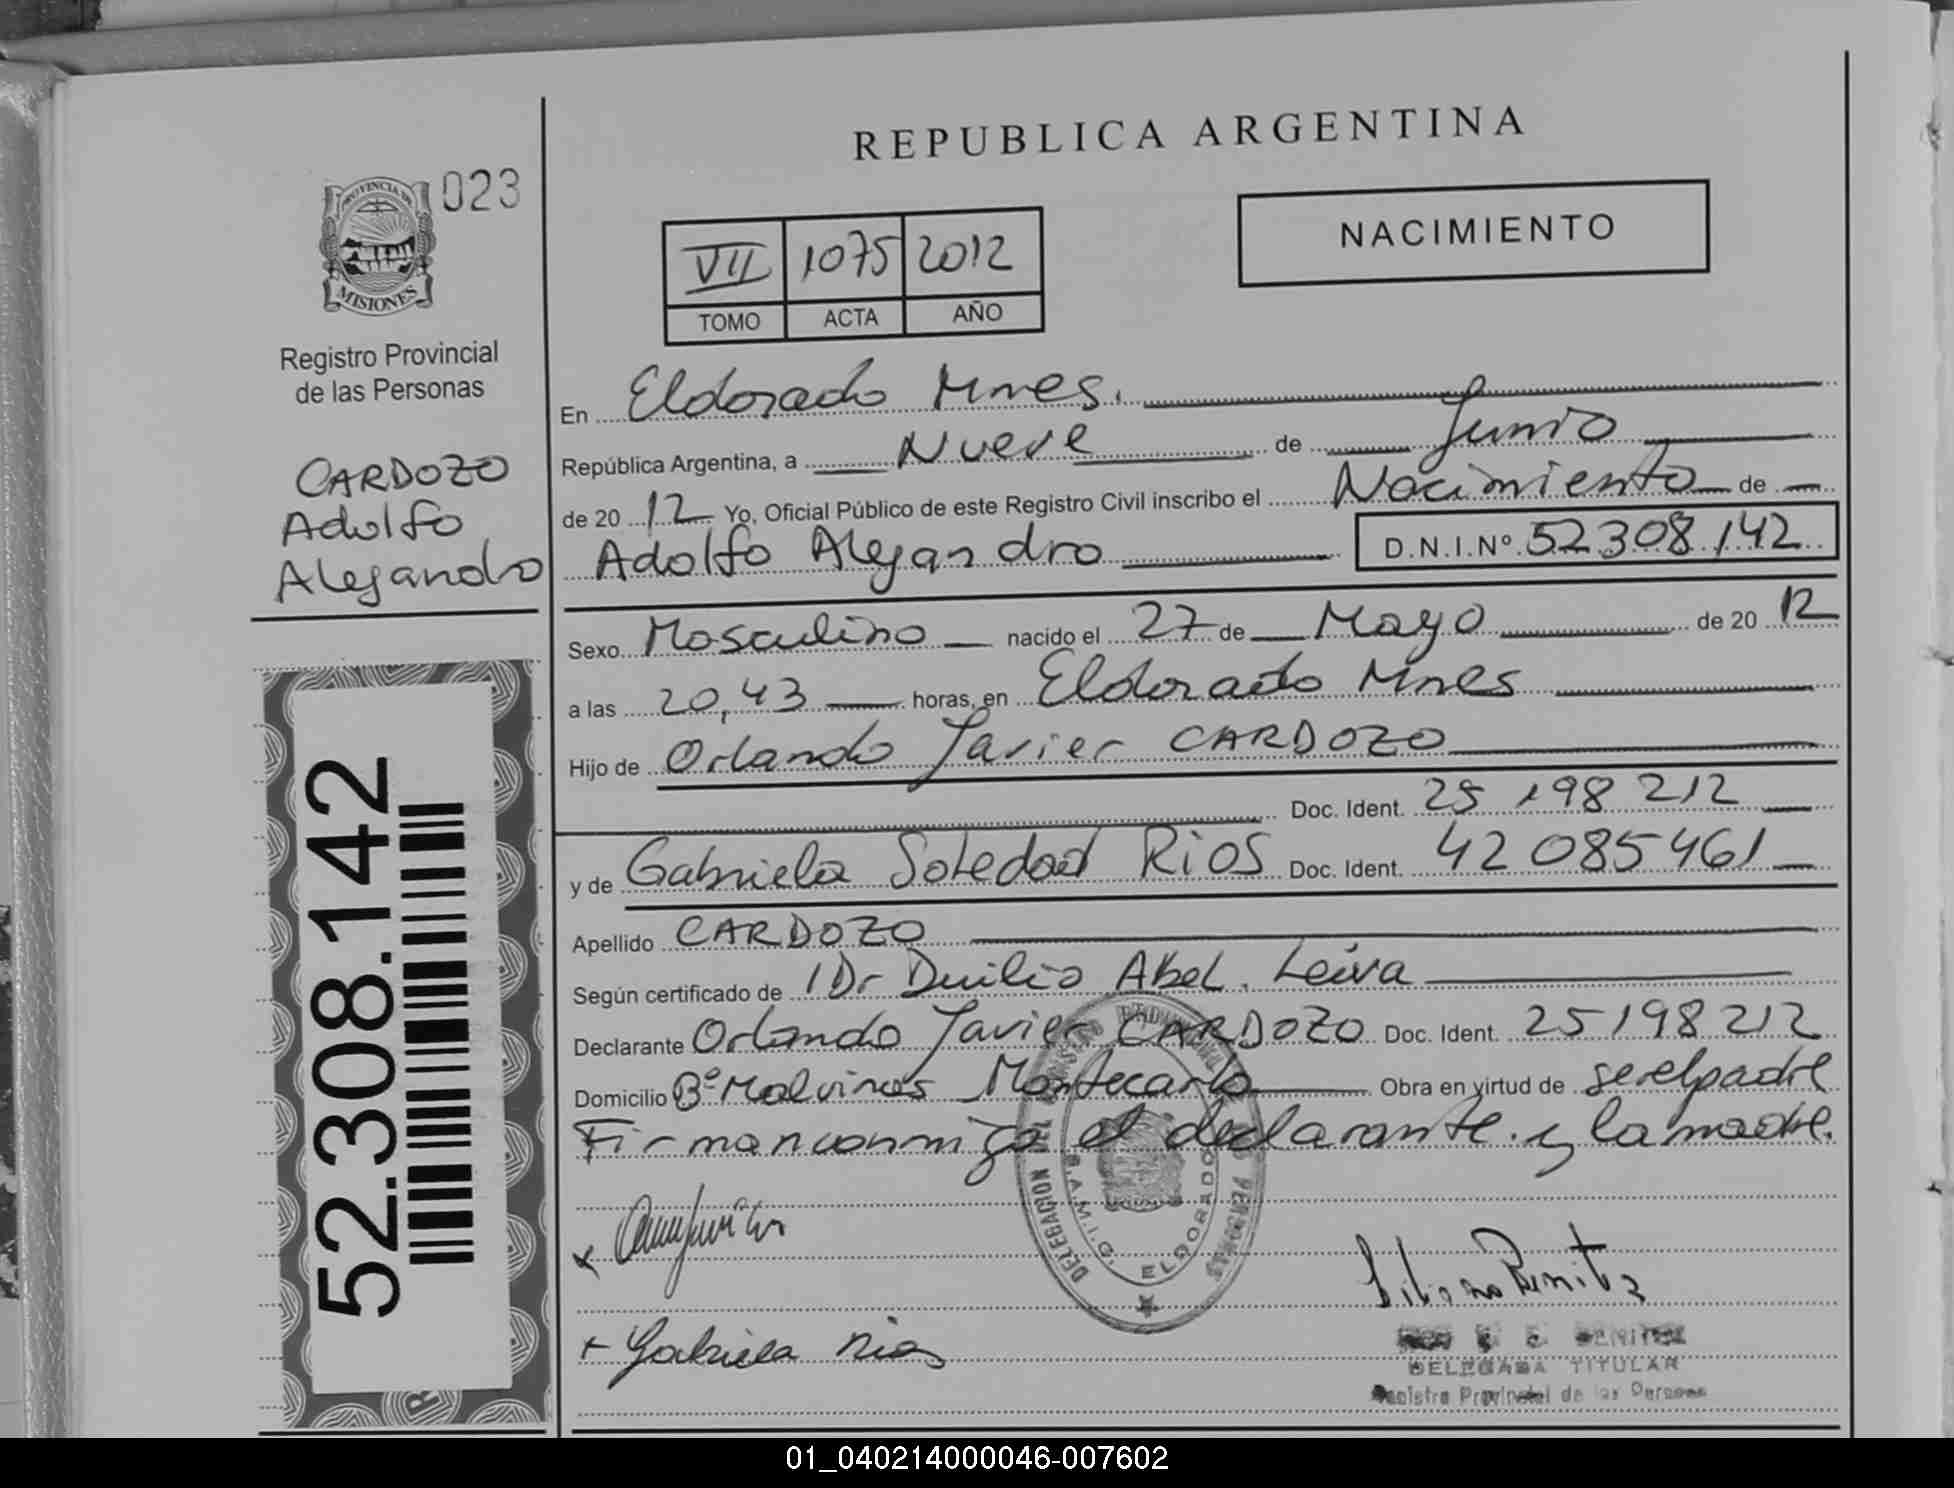 REPUBLICA ARGENTINA
023
PROVINCIA DE
MISIONES
Registro Provincial
de las Personas
CARDOZO
Adolfo
Alejandro
52.308.142
NACIMIENTO
VII 1075 2012
TOMO ACTA AÑO
En Eldorado Mnes.
República Argentina, a Nueve de Junio
de 2012 Yo, Oficial Público de este Registro Civil inscribo el Nacimiento de
Adolfo Alejandro D.N.I.Nº 52 308 142
Sexo Masculino nacido el 27 de Mayo de 2012
a las 20,43 horas, en Eldorado Mnes
Hijo de Orlando Javier CARDOZO
Doc. Ident. 25 198 212
y de Gabriela Soledad RIOS Doc. Ident. 42 085461
Apellido CARDOZO
Según certificado de Dr Duilio Abel. Leiva
Declarante Orlando Javier CARDOZO Doc. Ident. 25198212
Domicilio Bº Malvinas Montecarlo Obra en virtud de ser el padre
Firman conmigo el declarante y la madre.
DELEGACION DEL REGISTRO PROVINCIAL DE LAS PERSONAS
ELDORADO
Gabriela Rios
BENITEZ
DELEGADA TITULAR
Registro Provincial de las Personas
01_040214000046-007602